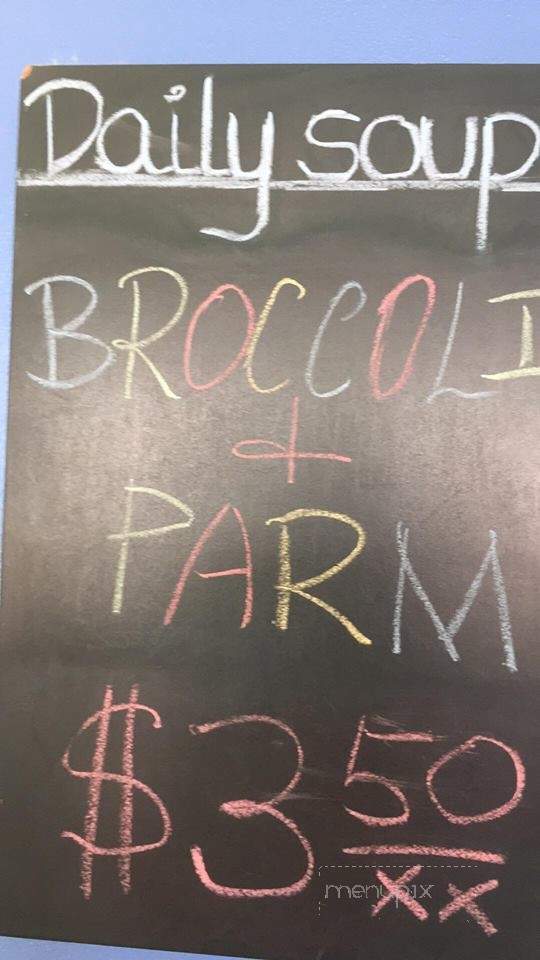 Daily soup
BROCCOLI
+
PARM
$3 50
xx
menupix